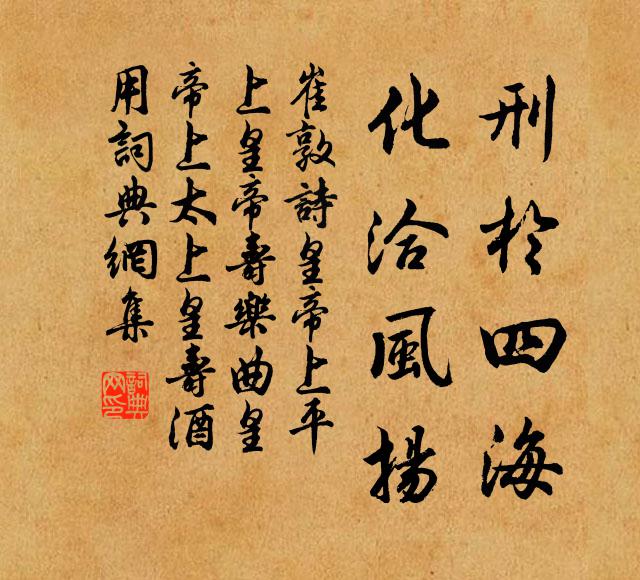 刑於四海
化洽風揚
崔敦詩皇帝上平
上皇帝壽樂曲皇
帝上太上皇壽酒
用詞典網集
詞典網印